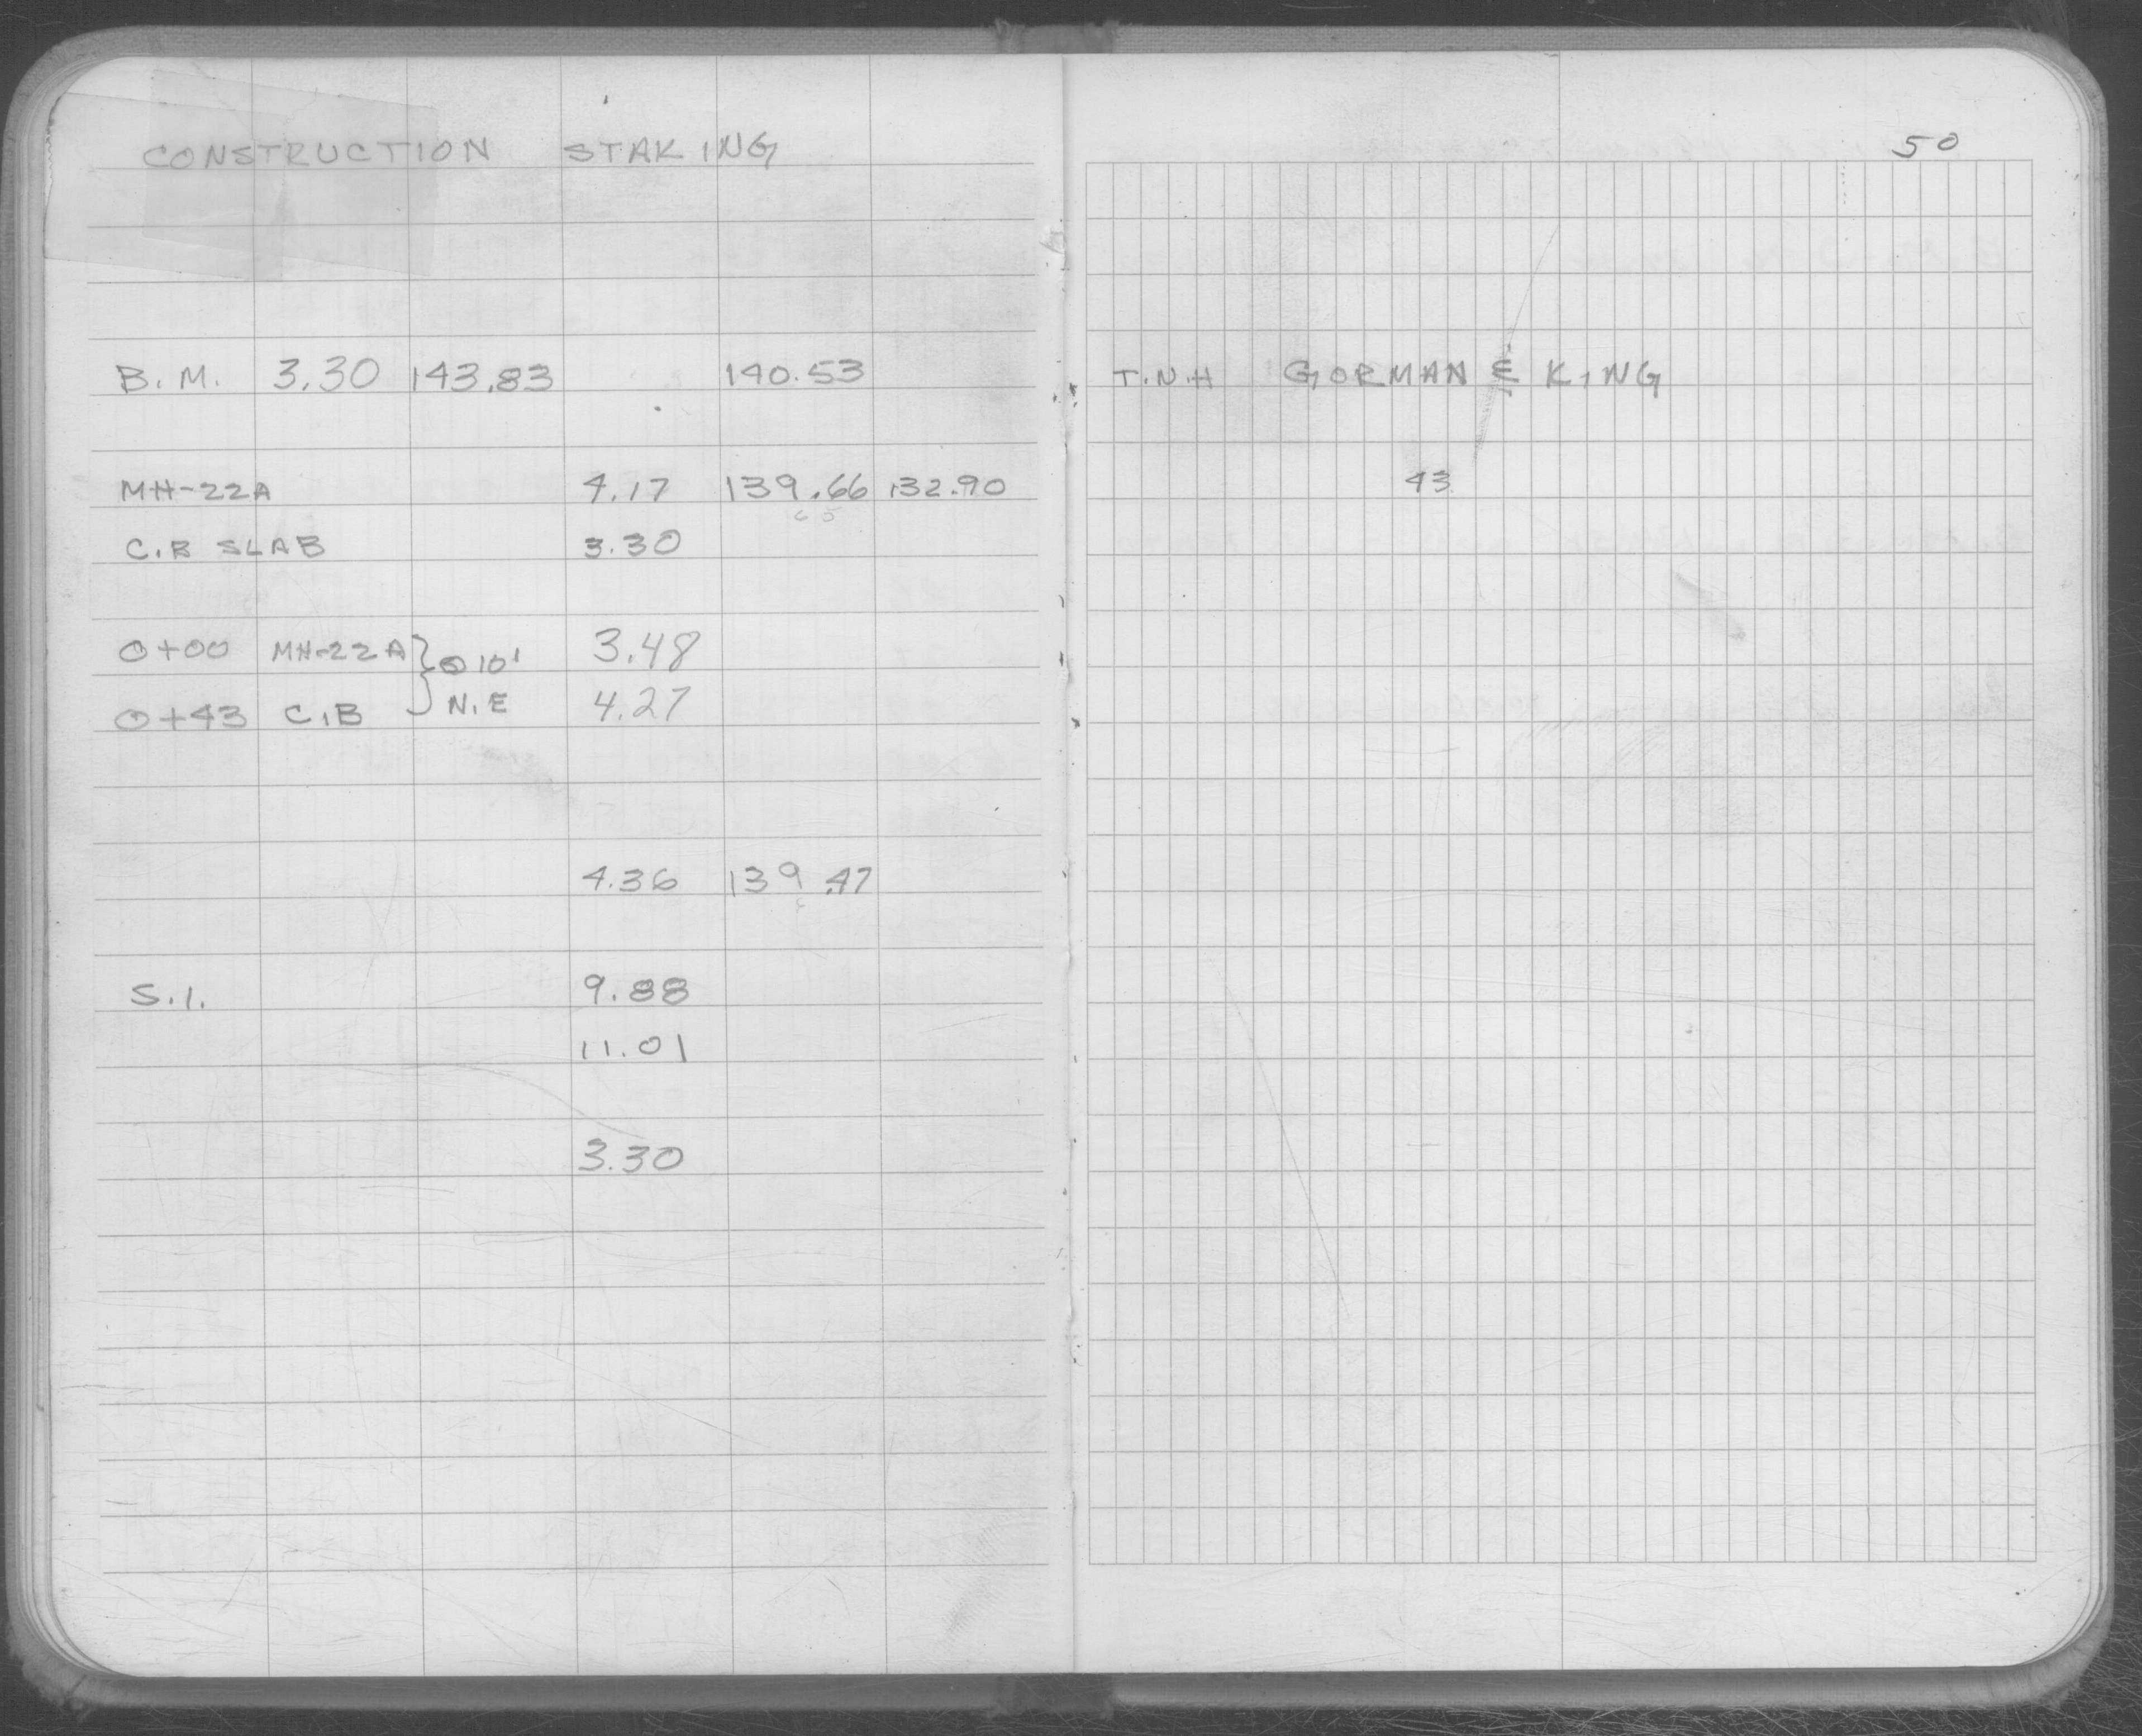 CONSTRUCTION STAKING
50
B.M. 3.30 143.83 140.53 T.N.H GORMAN & KING
MH-22A 4.17 139.66 132.90 43
C.B SLAB 3.30
0+00 MH-22A } @ 10' 3.48
0+43 C.B N.E 4.27
4.36 139.47
S.I. 9.88
11.01
3.30